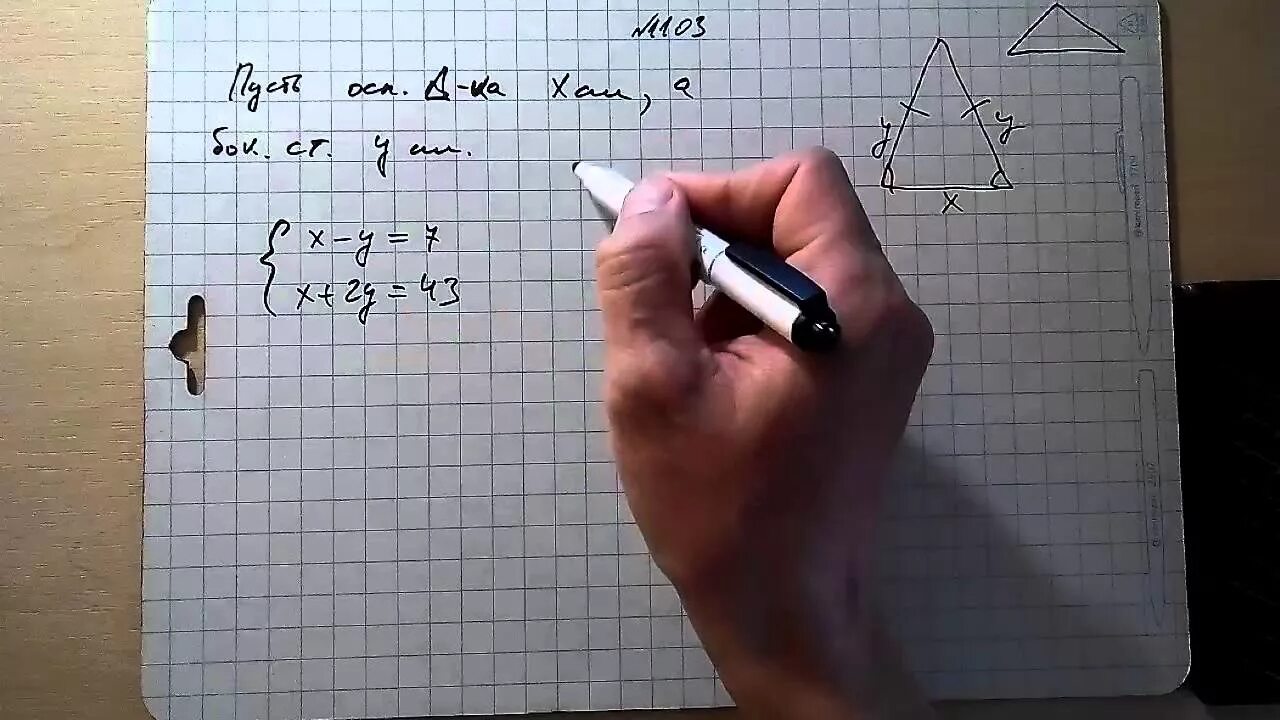 №1103
Пусть осн. Δ-ка x см, а
бок. ст. y см.
x - y = 7
x + 2y = 43
y
y
x